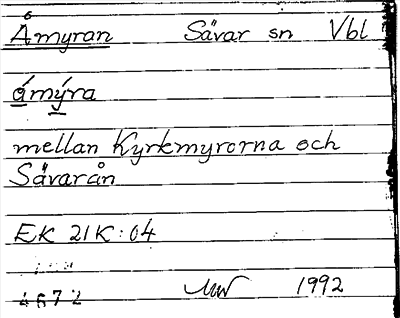 Åmyran Sävar sn Vbl
åmýra
mellan Kyrkmyrorna och
Sävarån
EK 21K:04
4672 1992